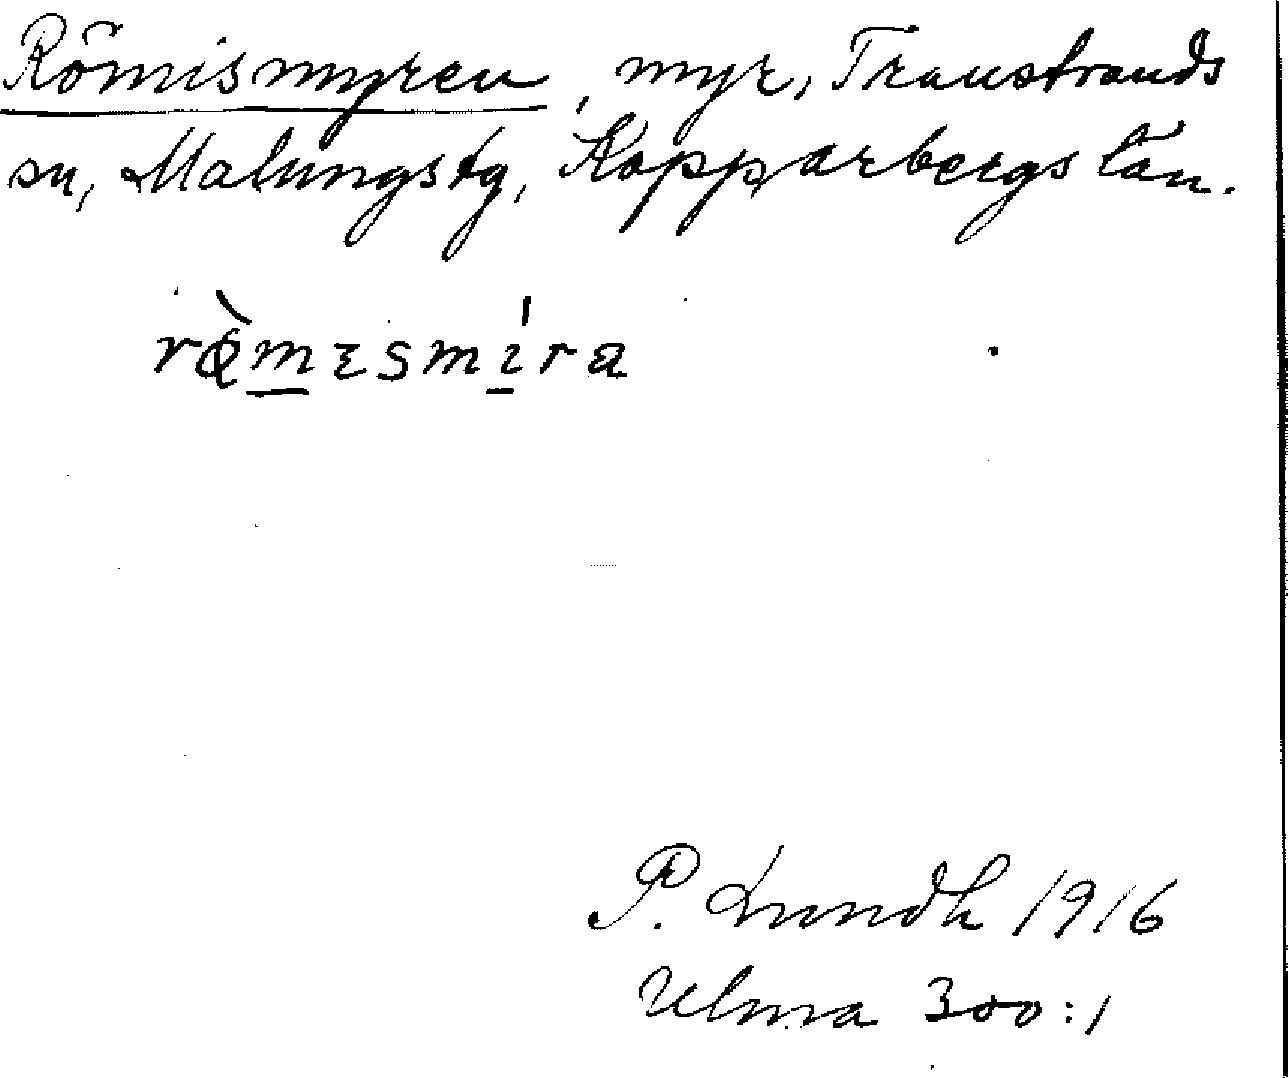 Römismyren, myr, Transtrands
sn, Malungs tg, Kopparbergs län.
rœ̀mɛsmíra
P. Lundh 1916
Ulma 300:1